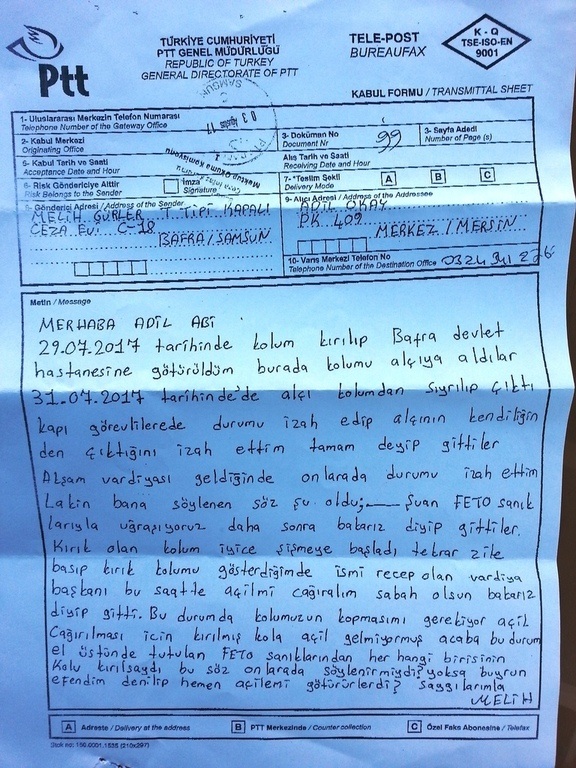 Ptt
TÜRKİYE CUMHURİYETİ
PTT GENEL MÜDÜRLÜĞÜ
REPUBLIC OF TURKEY
GENERAL DIRECTORATE OF PTT
TELE-POST
BUREAUFAX
K - Q
TSE-ISO-EN
9001
KABUL FORMU / TRANSMITTAL SHEET
1- Uluslararası Merkezin Telefon Numarası
Telephone Number of the Gateway Office
2- Kabul Merkezi
Originating Office
3- Doküman No
Document Nr
99
3- Sayfa Adedi
Number of Page (s)
5- Kabul Tarih ve Saati
Acceptance Date and Hour
Alış Tarih ve Saati
Receiving Date and Hour
6- Risk Göndericiye Aittir
Risk Belongs to the Sender
İmza
Signature
7- *Teslim Şekli
Delivery Mode
A
B
C
Gönderici Adresi / Address of the Sender
MELİH GÜRLER T TİPİ KAPALI
CEZA EVİ C-18
BAFRA / SAMSUN
9- Alıcı Adresi / Address of the Addressee
ADİL OKAY
PK 409
MERKEZ / MERSİN
10- Varış Merkezi Telefon No
Telephone Number of the Destination Office
0324 341
Metin / Message
MERHABA ADİL ABİ
29.07.2017 tarihinde kolum kırılıp Bafra devlet
hastanesine götürüldüm burada kolumu alçıya aldılar
31.07.2017 tarihinde'de alçı kolumdan sıyrılıp çıktı
kapı görevlilerede durumu izah edip alçının kendiliğin
den çıktığını izah ettim tamam deyip gittiler
Akşam vardiyası geldiğinde onlarada durumu izah ettim
Lakin bana söylenen söz şu oldu; Şuan FETO sanık
larıyla uğraşıyoruz daha sonra bakarız diyip gittiler.
Kırık olan kolum iyice şişmeye başladı tekrar zile
basıp kırık kolumu gösterdiğimde ismi recep olan vardiya
başkanı bu saatte açilmi çağıralım sabah olsun bakarız
diyip gitti. Bu durumda kolumuzun kopmasını gerekiyor açil
Çağırılması için kırılmış kola açil gelmiyormuş acaba bu durum
el üstünde tutulan FETO sanıklarından her hangi birisinin
Kolu kırılsaydı bu söz onlarada söylenirmiydi? yoksa buyrun
efendim denilip hemen açilemi götürürlerdi? saygılarımla
MELİH
A Adreste / Delivery at the address
B PTT Merkezinde / Counter collection
C Özel Faks Abonesine / Telefax